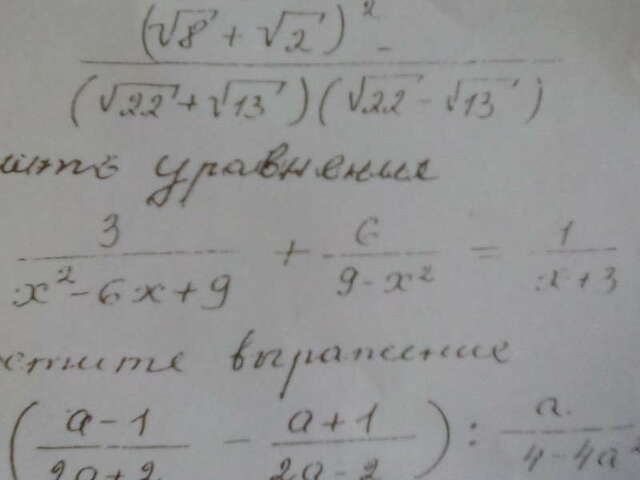 (√8 + √2)² -
(√22 + √13)(√22 - √13)
уравнение
3 / (x² - 6x + 9) + 6 / (9 - x²) = 1 / (x + 3)
выражение
((a - 1) / (2a + 2) - (a + 1) / (2a - 2)) : a / (4 - 4a²)